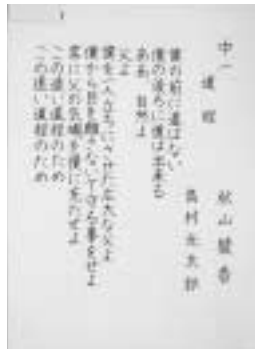 中一 秋山
道程
高村光太郎
僕の前に道はない
僕の後ろに道は出来る
ああ 自然よ
父よ
僕を一人立ちにさせた広大な父よ
僕から目を離さないで守る事をせよ
常に父の気魄を僕に充たせよ
この遠い道程のため
この遠い道程のため